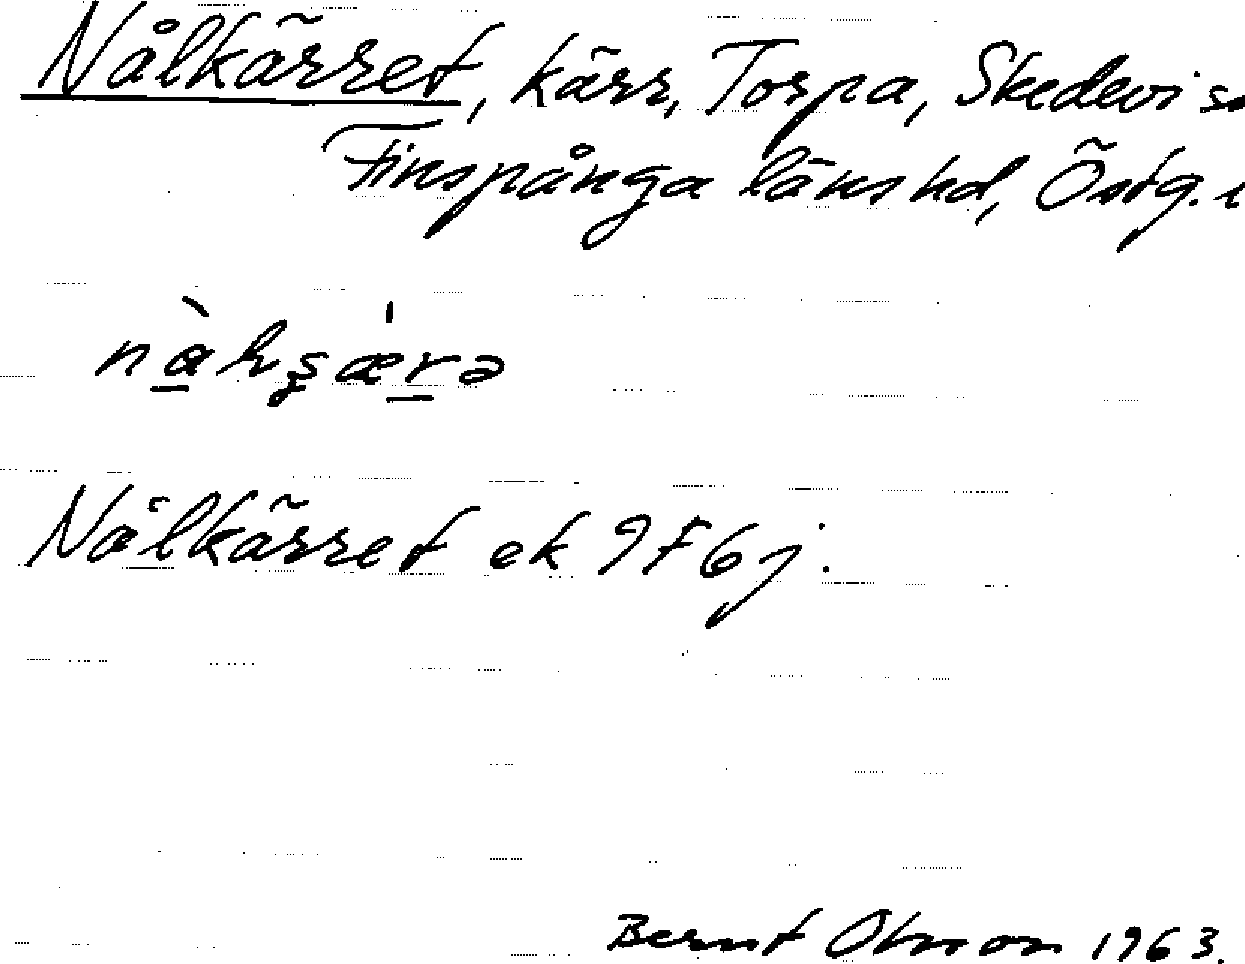 Nålkärret, kärr, Torpa, Skedevi s
Finspånga länshd, Östg.
Nålkärret ek 9F6j.
Bernt Olsson 1963.